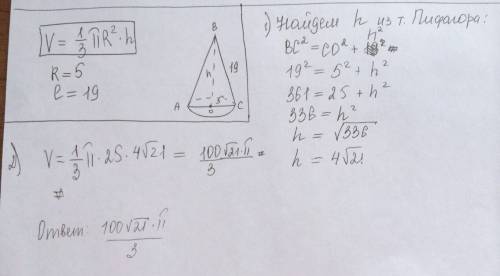 V = 1/3 πR²·h
R = 5
ℓ = 19
B
h
19
A
O
5
C
1) Найдем h из т. Пифагора:
BC² = CO² + h²
19² = 5² + h²
361 = 25 + h²
336 = h²
h = √336
h = 4√21
2) V = 1/3 π·25·4√21 = 100√21·π/3
Ответ: 100√21·π/3